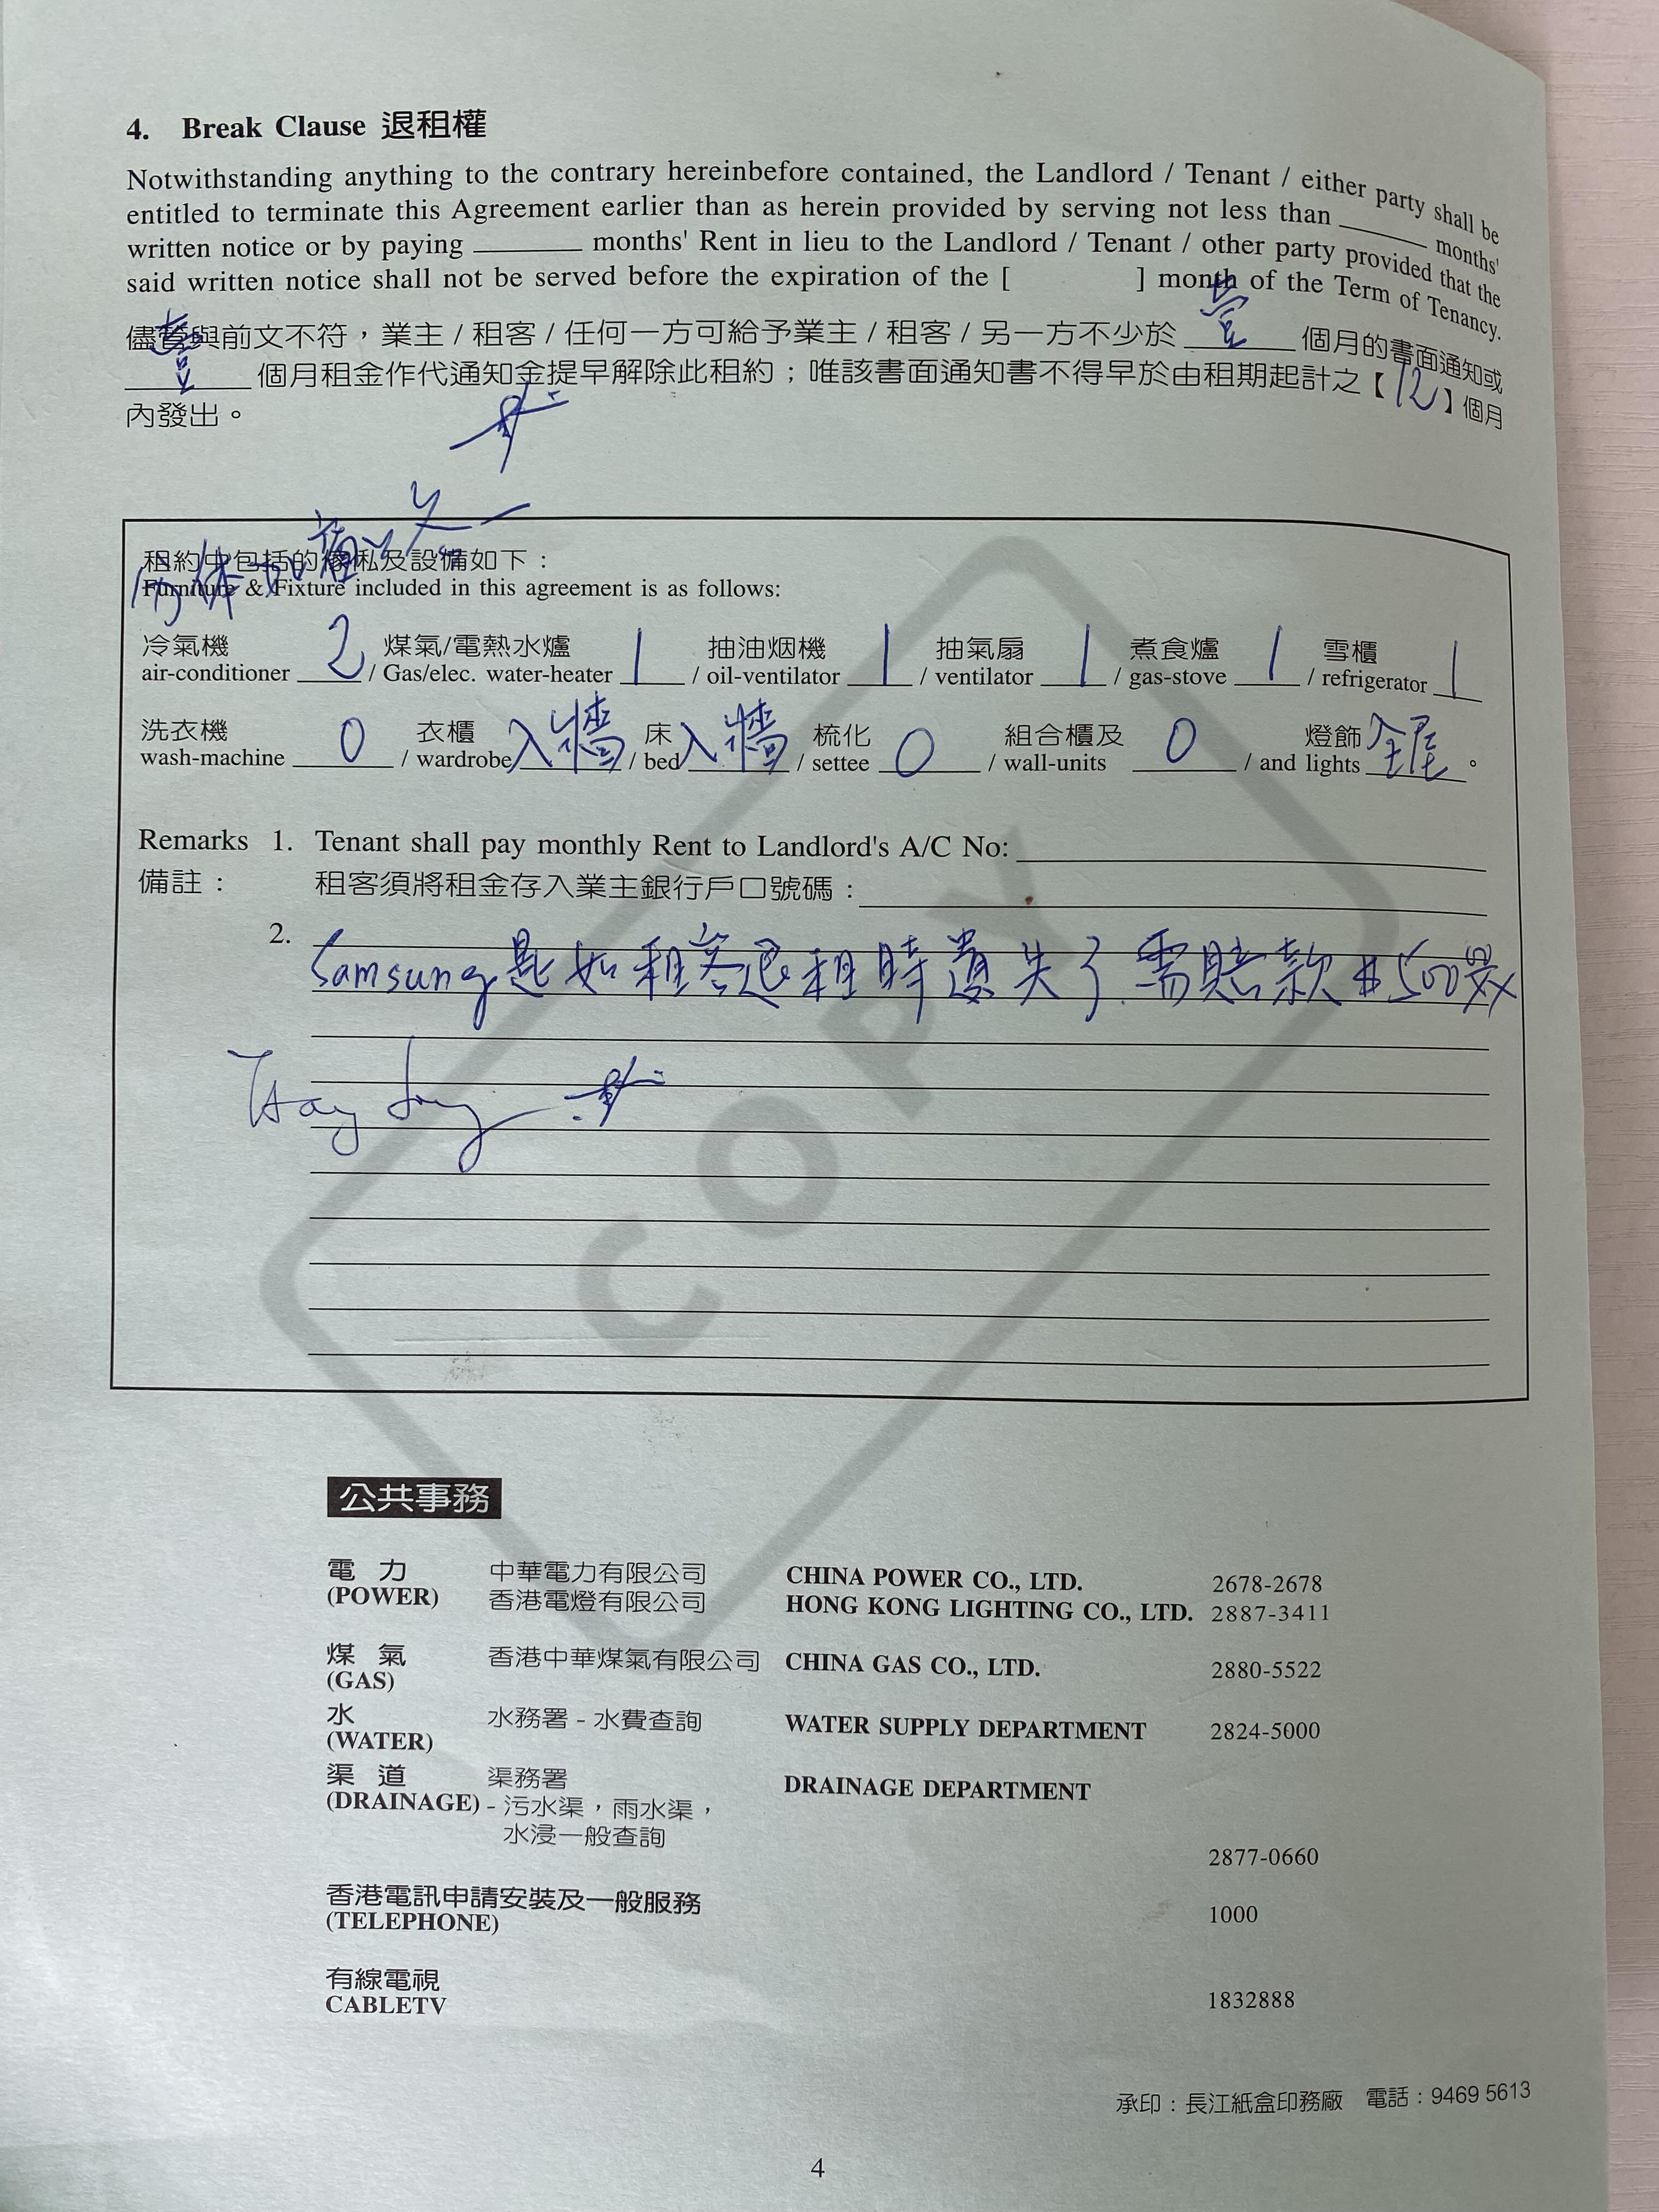 4. Break Clause 退租權
Notwithstanding anything to the contrary hereinbefore contained, the Landlord / Tenant / either party shall be
entitled to terminate this Agreement earlier than as herein provided by serving not less than ________ months'
written notice or by paying ________ months' Rent in lieu to the Landlord / Tenant / other party provided that the
said written notice shall not be served before the expiration of the [ ] month of the Term of Tenancy.
儘管與前文不符，業主 / 租客 / 任何一方可給予業主 / 租客 / 另一方不少於 壹 個月的書面通知或
壹 個月租金作代通知金提早解除此租約；唯該書面通知書不得早於由租期起計之【12】個月
內發出。
租約中包括的傢私及設備如下：
Furniture & Fixture included in this agreement is as follows:
冷氣機 2 煤氣/電熱水爐 1 抽油烟機 1 抽氣扇 1 煮食爐 1 雪櫃 1
air-conditioner / Gas/elec. water-heater / oil-ventilator / ventilator / gas-stove / refrigerator
洗衣機 0 衣櫃 入墻 床 入墻 梳化 0 組合櫃及 0 燈飾 全屋
wash-machine / wardrobe / bed / settee / wall-units / and lights 。
Remarks 1. Tenant shall pay monthly Rent to Landlord's A/C No:
備註： 租客須將租金存入業主銀行戶口號碼：
2. Samsung匙如租客退租時遺失了需賠款$500
公共事務
電 力 中華電力有限公司 CHINA POWER CO., LTD. 2678-2678
(POWER) 香港電燈有限公司 HONG KONG LIGHTING CO., LTD. 2887-3411
煤 氣 香港中華煤氣有限公司 CHINA GAS CO., LTD. 2880-5522
(GAS)
水 水務署 - 水費查詢 WATER SUPPLY DEPARTMENT 2824-5000
(WATER)
渠 道 渠務署 DRAINAGE DEPARTMENT
(DRAINAGE) - 污水渠，雨水渠，
水浸一般查詢
2877-0660
香港電訊申請安裝及一般服務
(TELEPHONE) 1000
有線電視
CABLETV 1832888
承印：長江紙盒印務廠 電話：9469 5613
4
COPY